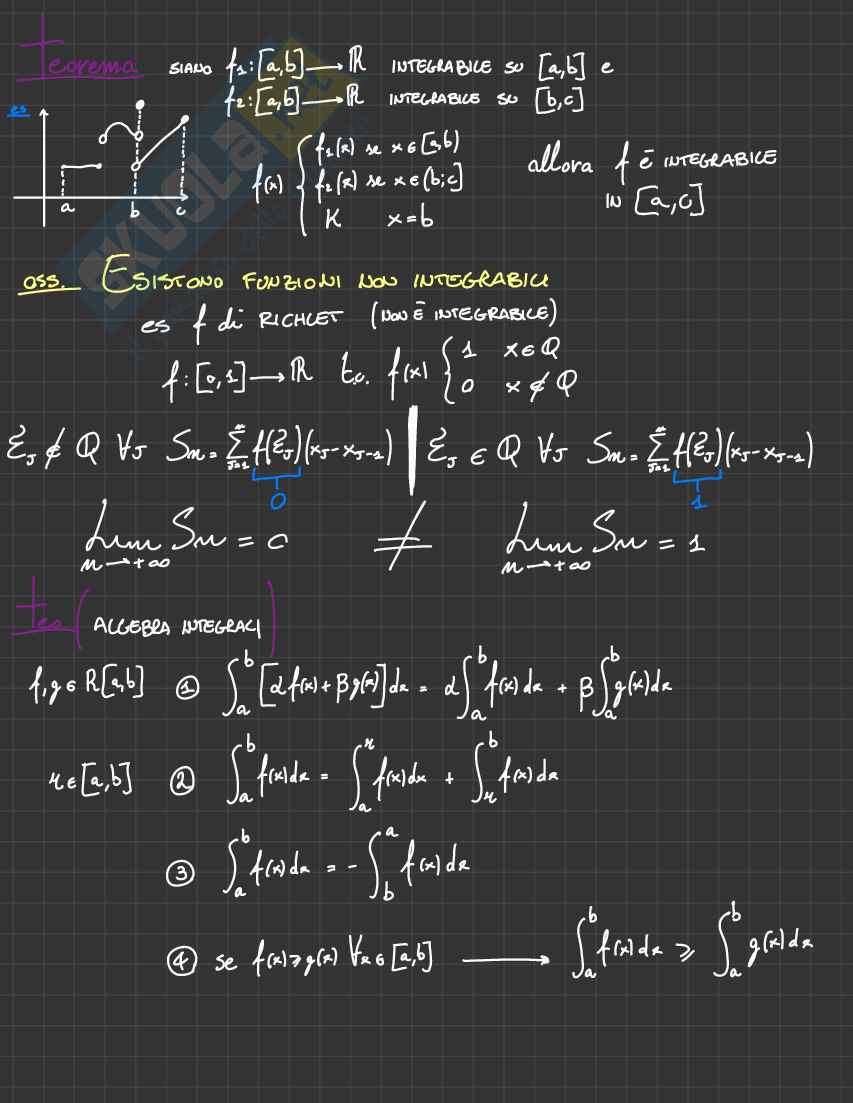 teorema SIANO f₁: [a,b] → ℝ INTEGRABILE SU [a,b] e
f₂: [a,b] → ℝ INTEGRABILE SU [b,c]
es
a b c
f(x) { f₁(x) se x ∈ [a,b)
f₂(x) se x ∈ (b;c]
K x=b
allora f ē INTEGRABILE
IN [a,c]
SKUOLA.net
oss. ESISTONO FUNZIONI NON INTEGRABILI
es f di RICHLET (NON Ē INTEGRABILE)
f: [0,1] → ℝ t.c. f(x) { 1 x ∈ Q
0 x ∉ Q
ξⱼ ∉ Q ∀J Sn = Σⁿⱼ₌₁ f(ξⱼ)(xⱼ - xⱼ₋₁) | ξⱼ ∈ Q ∀J Sn = Σⁿⱼ₌₁ f(ξⱼ)(xⱼ - xⱼ₋₁)
0 1
Lim n→+∞ Sn = 0 ≠ Lim n→+∞ Sn = 1
teo (ALGEBRA INTEGRALI)
f,g ∈ R[a,b] ① ∫ₐᵇ [αf(x) + βg(x)]dx = α∫ₐᵇ f(x)dx + β∫ₐᵇ g(x)dx
r ∈ [a,b] ② ∫ₐᵇ f(x)dx = ∫ₐʳ f(x)dx + ∫ᵣᵇ f(x)dx
③ ∫ₐᵇ f(x)dx = - ∫_b^a f(x)dx
④ se f(x) ⩾ g(x) ∀x ∈ [a,b] → ∫ₐᵇ f(x)dx ⩾ ∫ₐᵇ g(x)dx